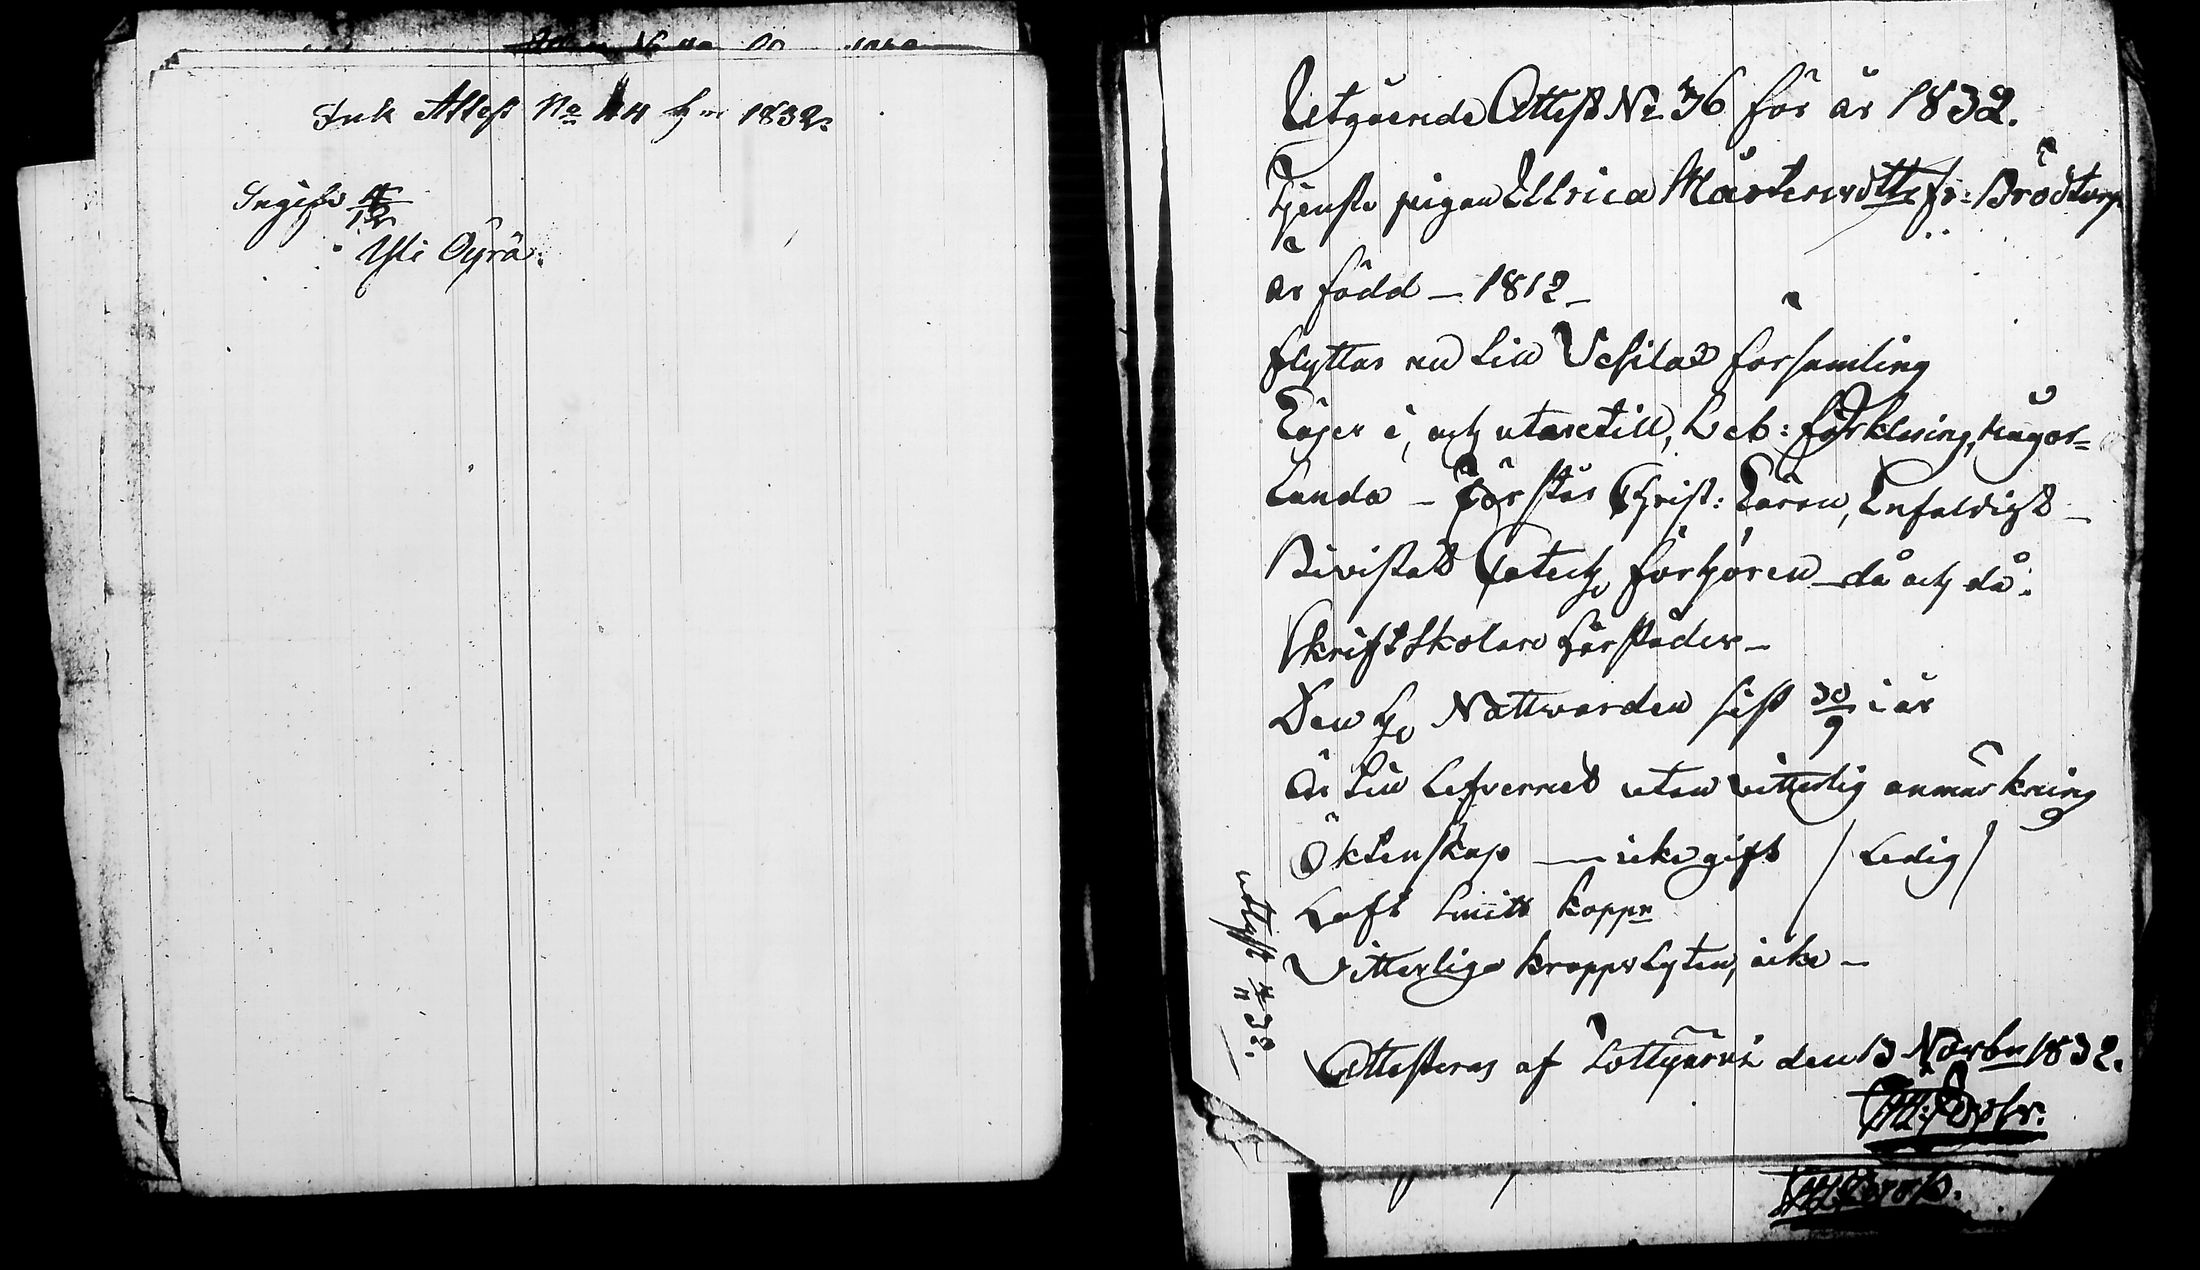 Ink Attest No 44 för 1832.
Ingifv 4/12
Yli Öyrä.
Utgående Attest No 36 för år 1832.
Tjenste pigan Ullrica Mårtensdttr fr: Brödtorp
är född – 1812 –
flyttar nu till Vesilax församling
Läser i, och utantill, Luk: förklaring, någor=
lunda – Förstår Christ: Läran, Enfaldigt –
Bivistat Catech förhören – då och då.
Skriftskolan härstädes –
Den H. Nattvarden sist 30/9 i år
Är till Lefvernet utan vitterlig anmärkning
Äktenskap — icke gift / Ledig /
Haft Smitt kopp
Vitterliga kropps Lyten, icke –
Attesteras af Tottijärvi den 13 Novbr 1832.
utflytt 32.